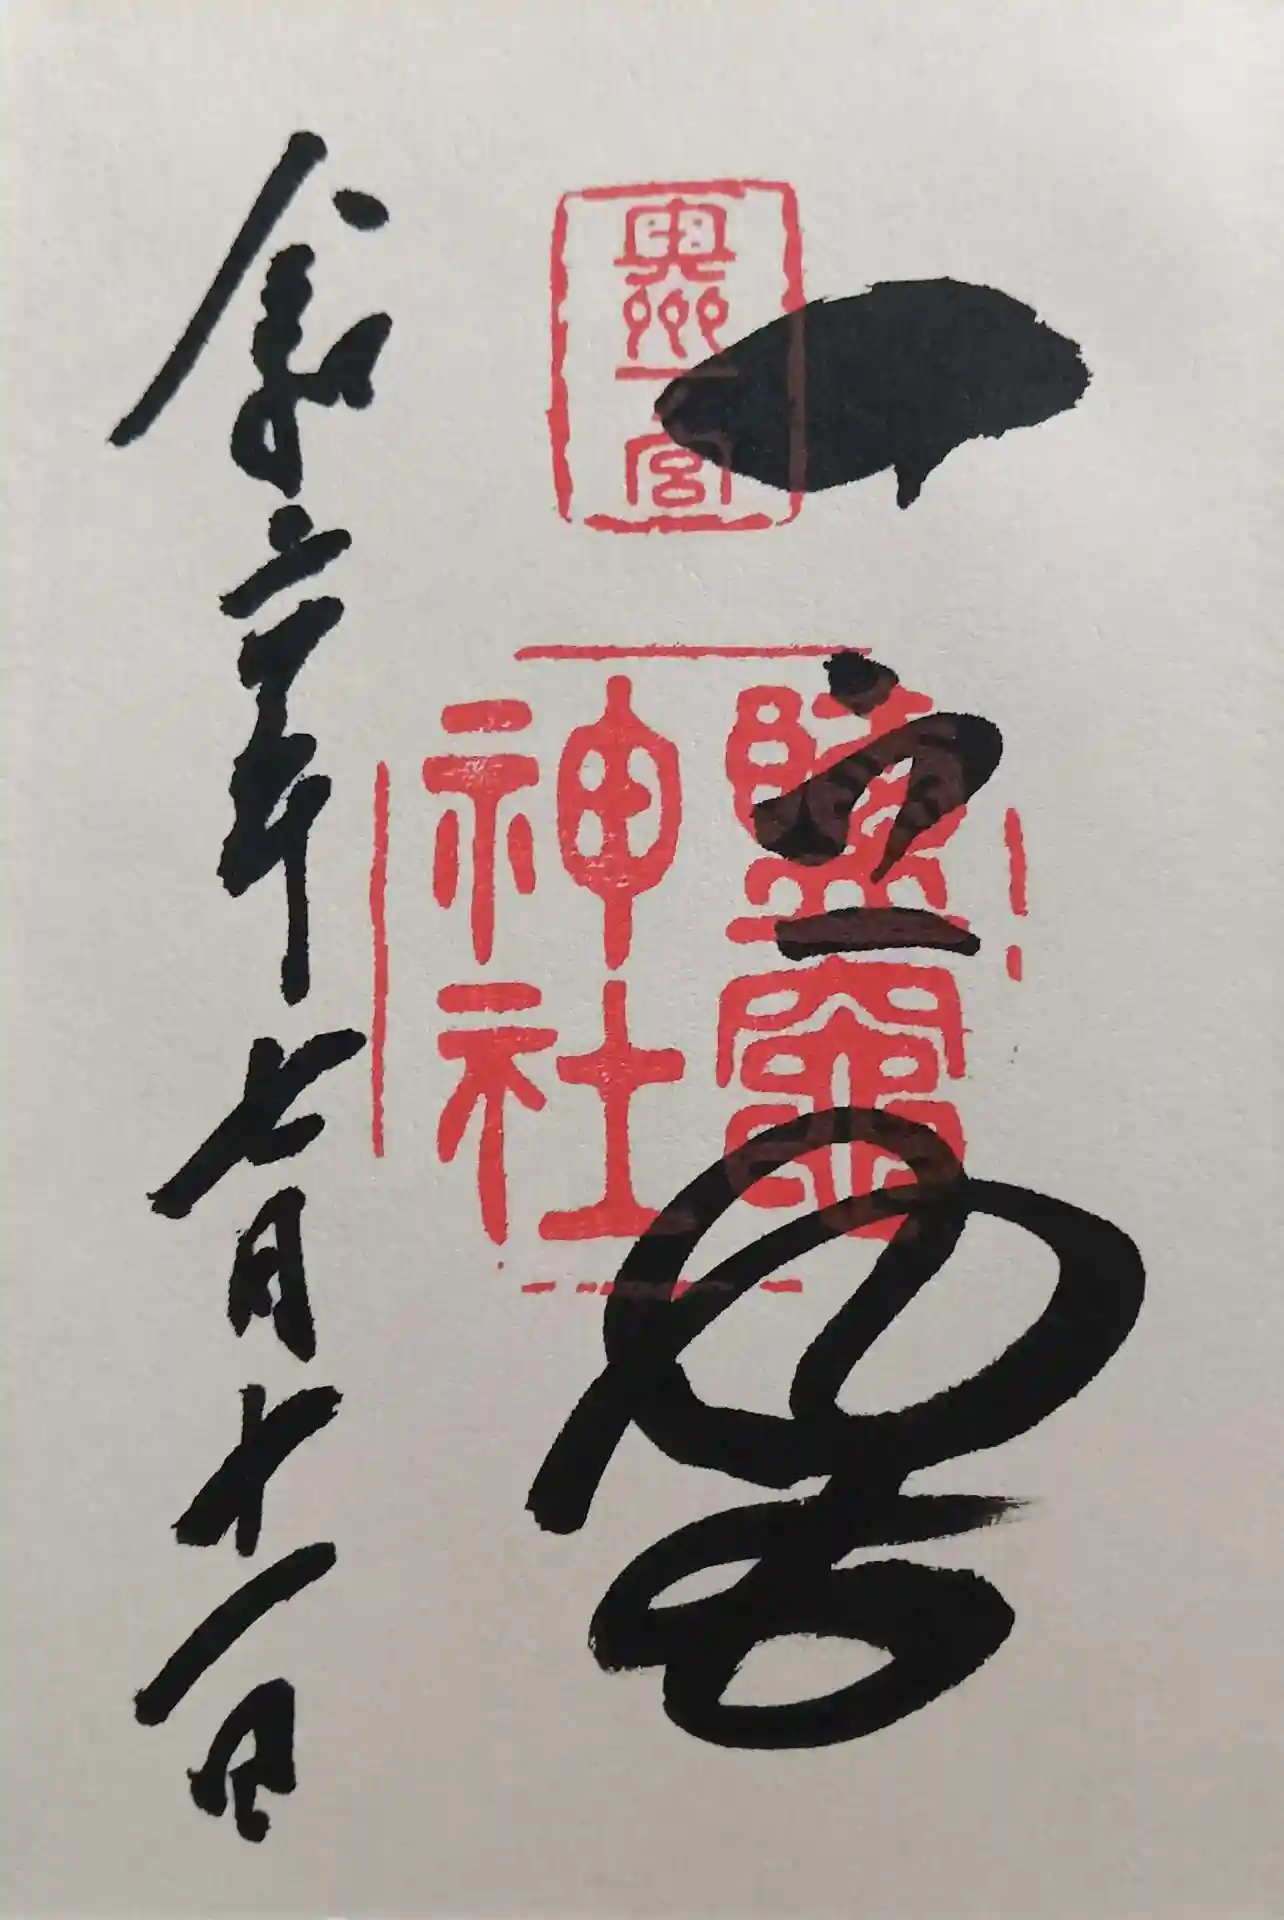 一之宮
奥州一宮
鹽竈
神社
令和六年七月十一日